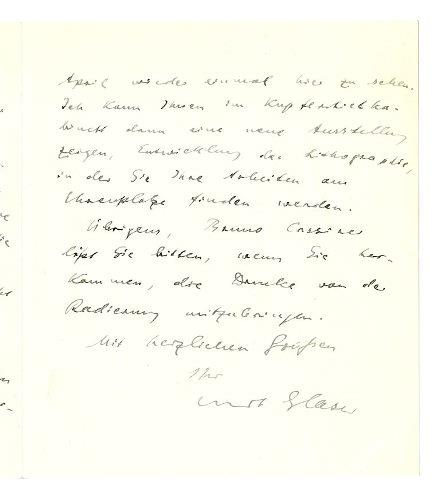 April wieder einmal hier zu sehen.
Ich kann Ihnen im Kupferstichka-
binett dann eine neue Ausstellung
zeigen, Entwicklung der Lithographie,
in der Sie Ihre Arbeiten am
Ehrenplatze finden werden.
Übrigens, Bruno Cassirer
läßt Sie bitten, wenn Sie her-
kommen, die Drucke von der
Radierung mitzubringen.
Mit herzlichen Grüßen
Ihr
Curt Glaser